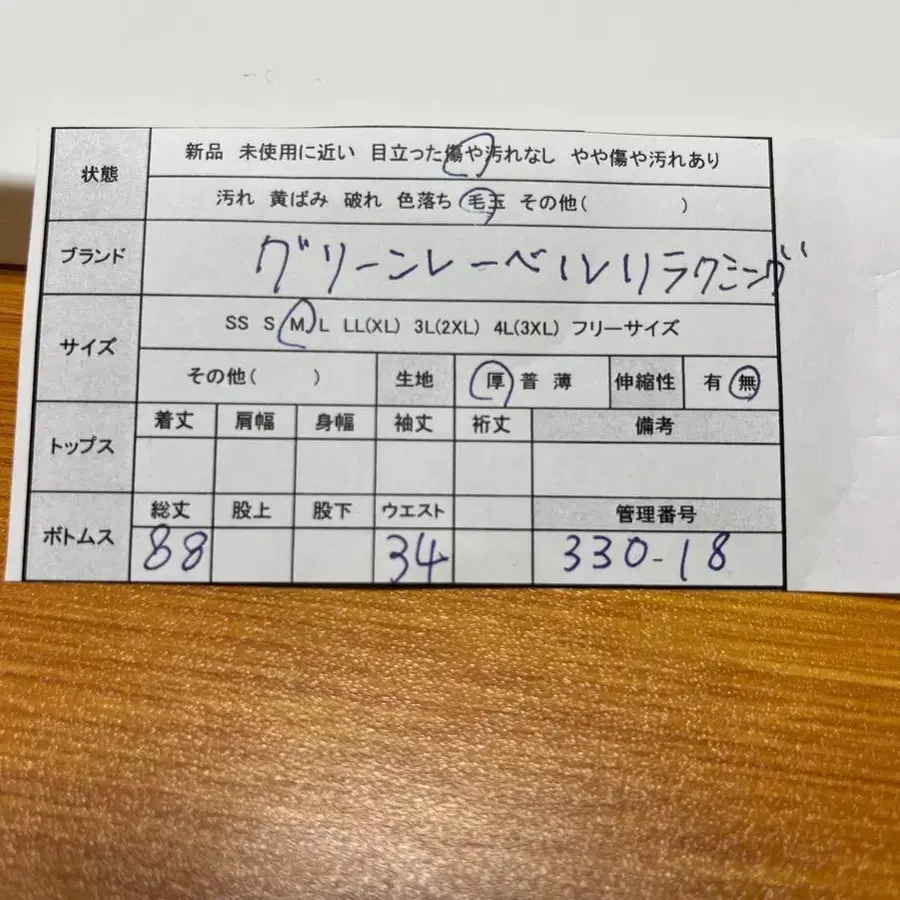 状態 新品 未使用に近い 目立った傷や汚れなし やや傷や汚れあり
汚れ 黄ばみ 破れ 色落ち 毛玉 その他( )
ブランド グリーンレーベルリラクミング
サイズ SS S M L LL(XL) 3L(2XL) 4L(3XL) フリーサイズ
その他( ) 生地 厚 普 薄 伸縮性 有 無
トップス 着丈 肩幅 身幅 袖丈 裄丈 備考
ボトムス 総丈 股上 股下 ウエスト 管理番号
88 34 330-18